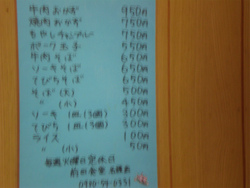 牛肉おかず 950円
焼肉おかず 750円
もやしチャンプルー 750円
ポーク玉子 550円
牛肉そば 650円
ソーキそば 650円
てびちそば 650円
そば(大) 550円
(小) 450円
ソーキ 1皿(3個) 300円
てびち 1皿(3個) 300円
ライス 100円
(小) 50円
毎週火曜日定休日
前の食堂